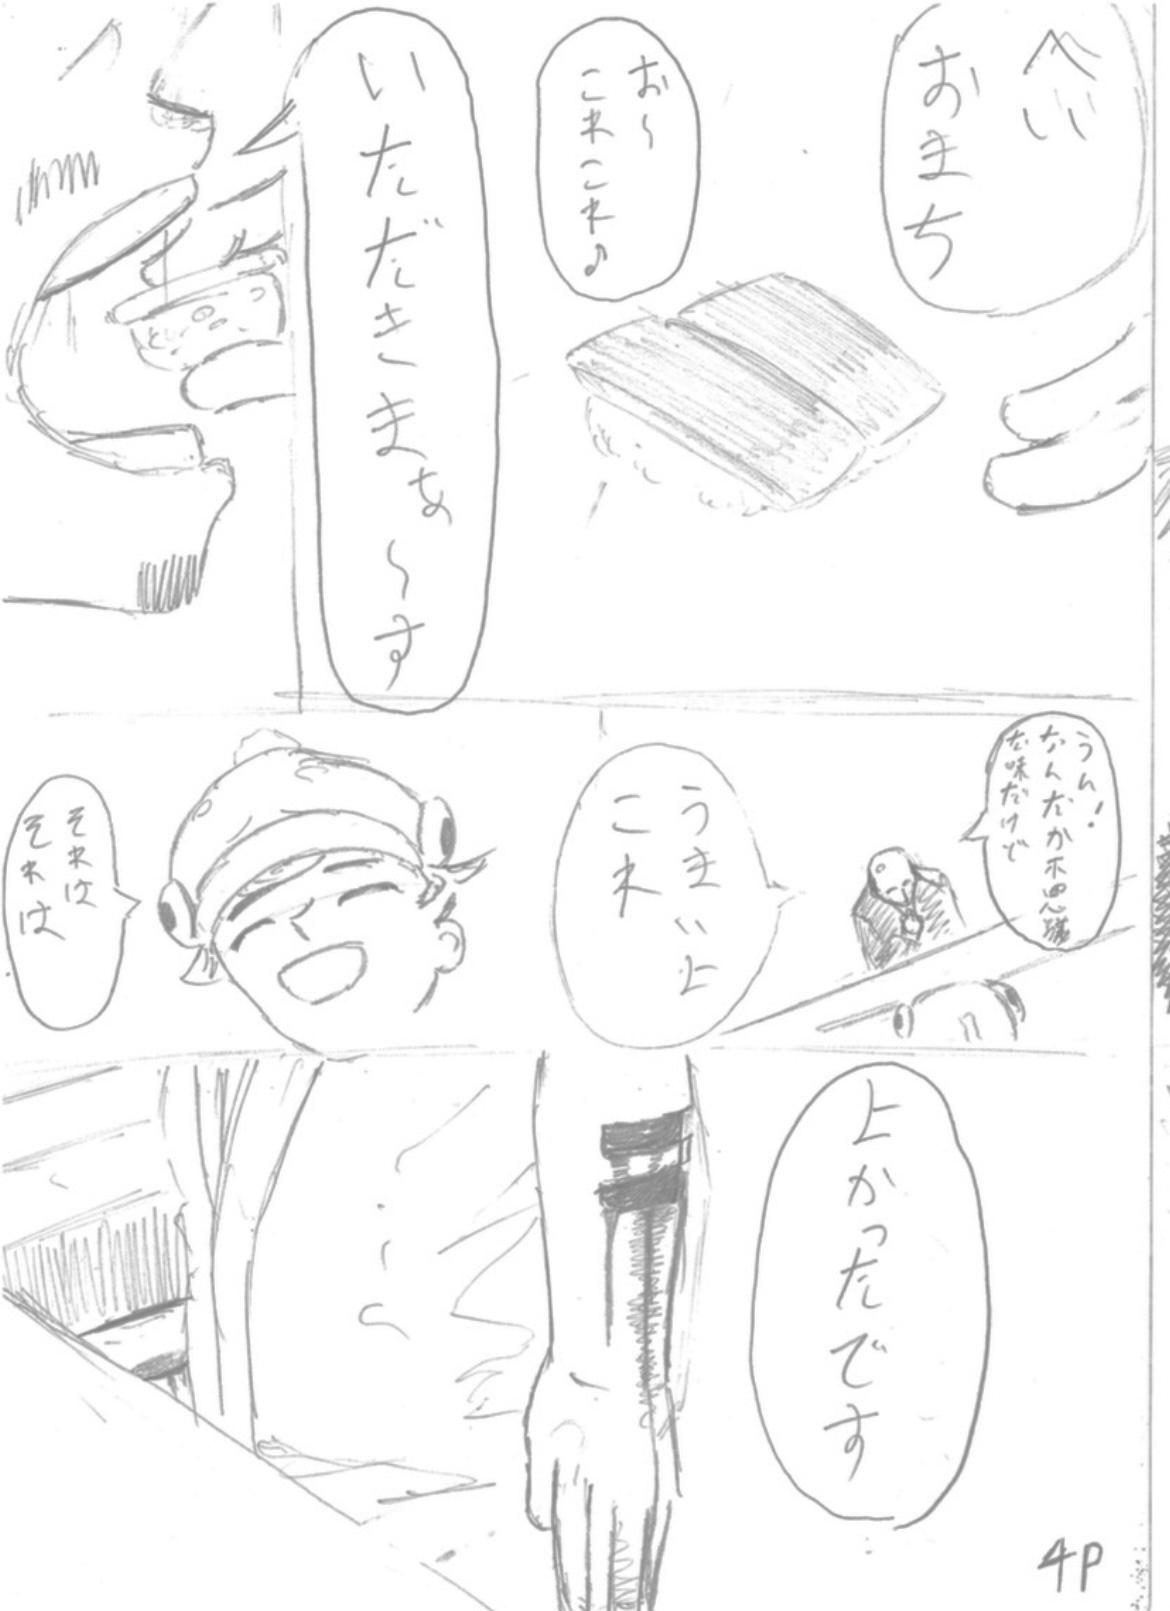 へい
おまち
お〜
これこれ♪
いただきまぁ〜す
うん!
なんだか不思議
な味だけど
うまいよ
これ
それは
それは
よかったです
4P